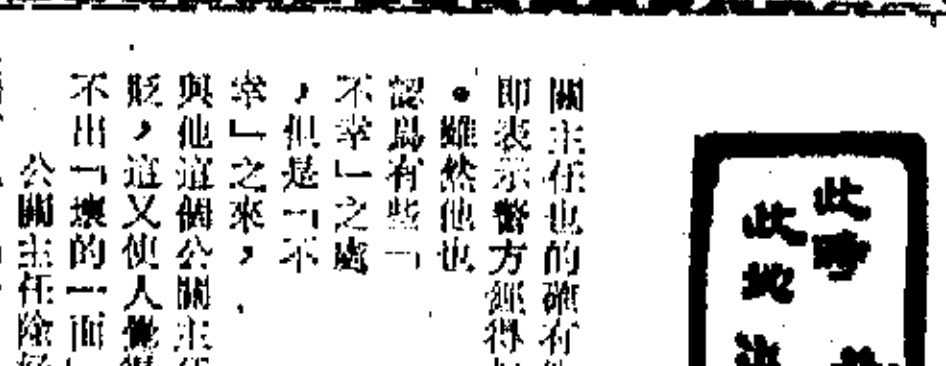 此時
此地
關主任也的確有
即表示警方經得
。雖然他也
認爲有些「
不幸」之處
，但是「不
幸」之來，
與他這個公關主任
貶，這又使人覺得
不出「壞的一面
公關主任除